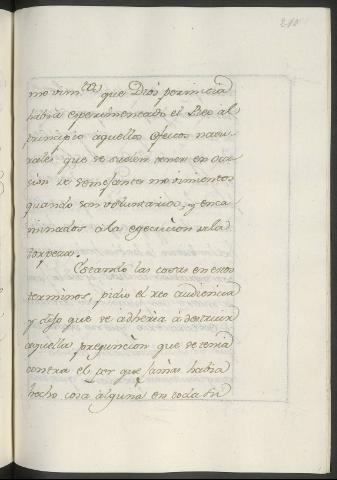 210
movim.tos que Dios permitia
habia experimentado el Reo al
principio aquellos efectos natu-
rales que se suelen tener en oca-
sion de semejantes movimientos
quando son voluntarios, y enca-
minados á la egecucion de la
torpeza.
Estando las cosas en estos
terminos, pidio el reo audiencia
y dijo que se adheria á destruir
aquella presuncion que se tenia
contra el por que jamas habia
hecho cosa alguna en toda su